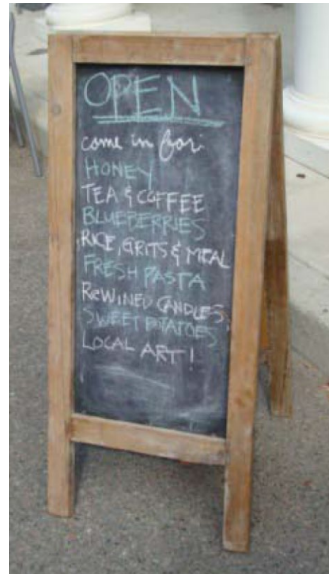 OPEN
come in for:
HONEY
TEA & COFFEE
BLUEBERRIES
RICE, GRITS & MEAL
FRESH PASTA
REWINED CANDLES,
SWEET POTATOES
LOCAL ART!